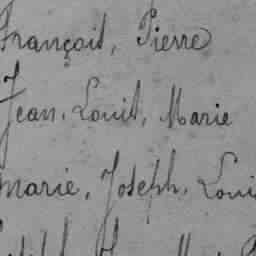 Françoit, Pierre
Jean, Louit, Marie
Marie, Joseph, Loui